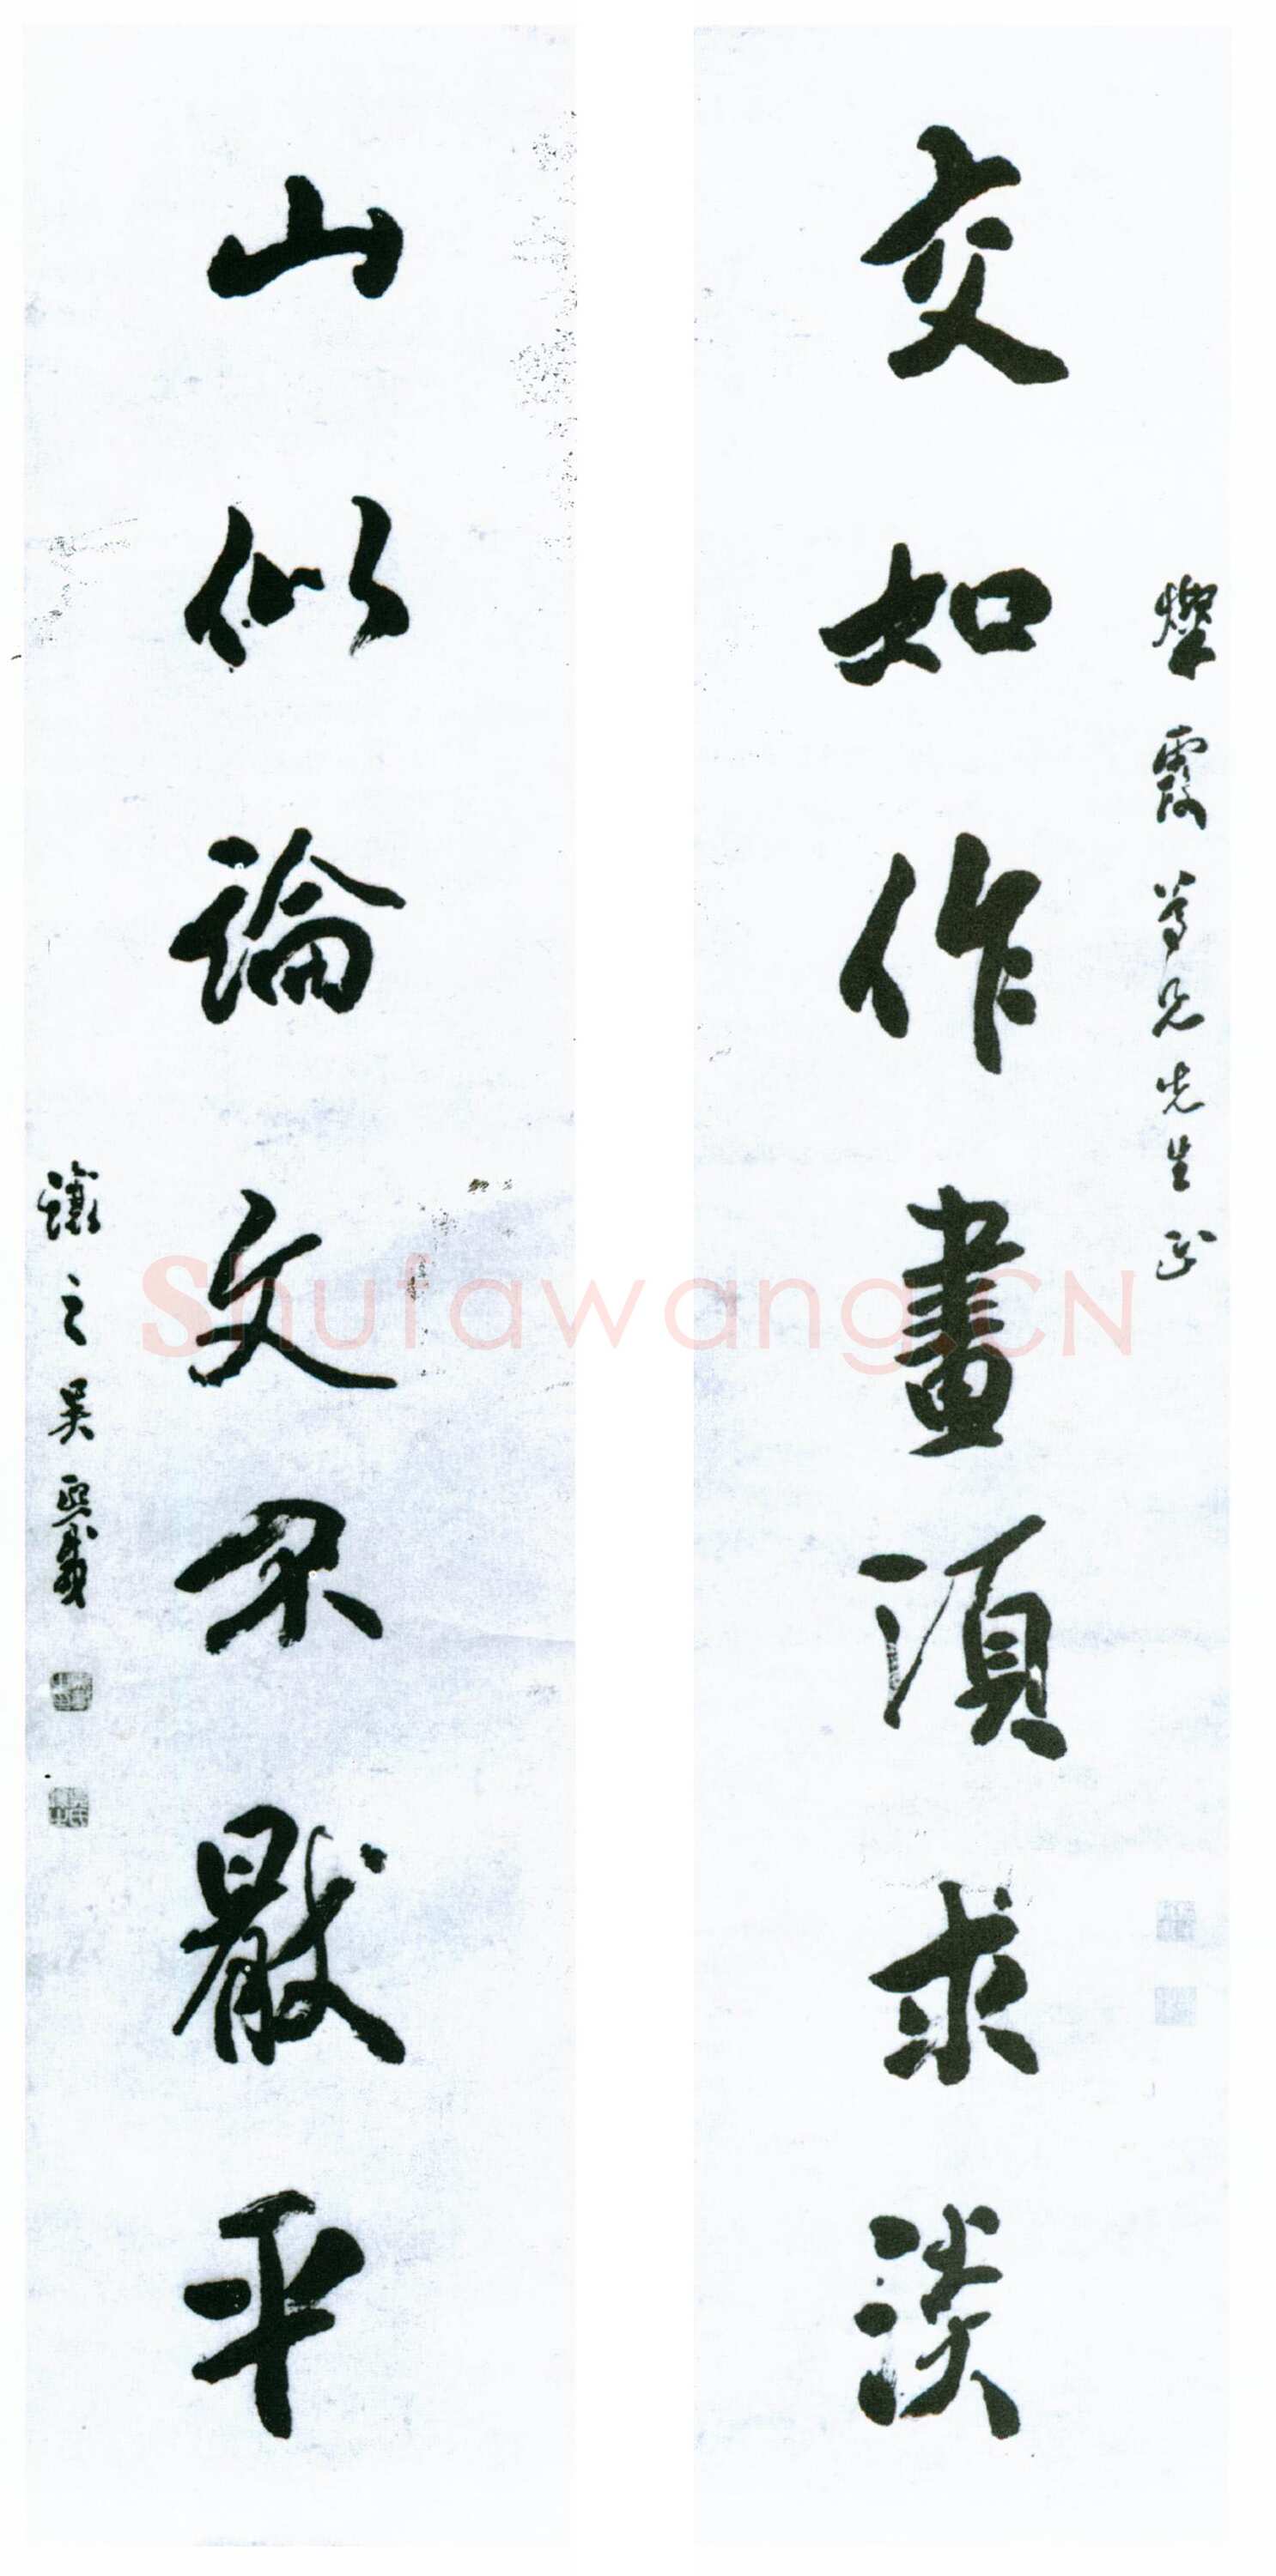 燦霞尊兄先生正
交如作畫須求淡
山似論文不厭平
讓之吳熙載
Shufawang.CN